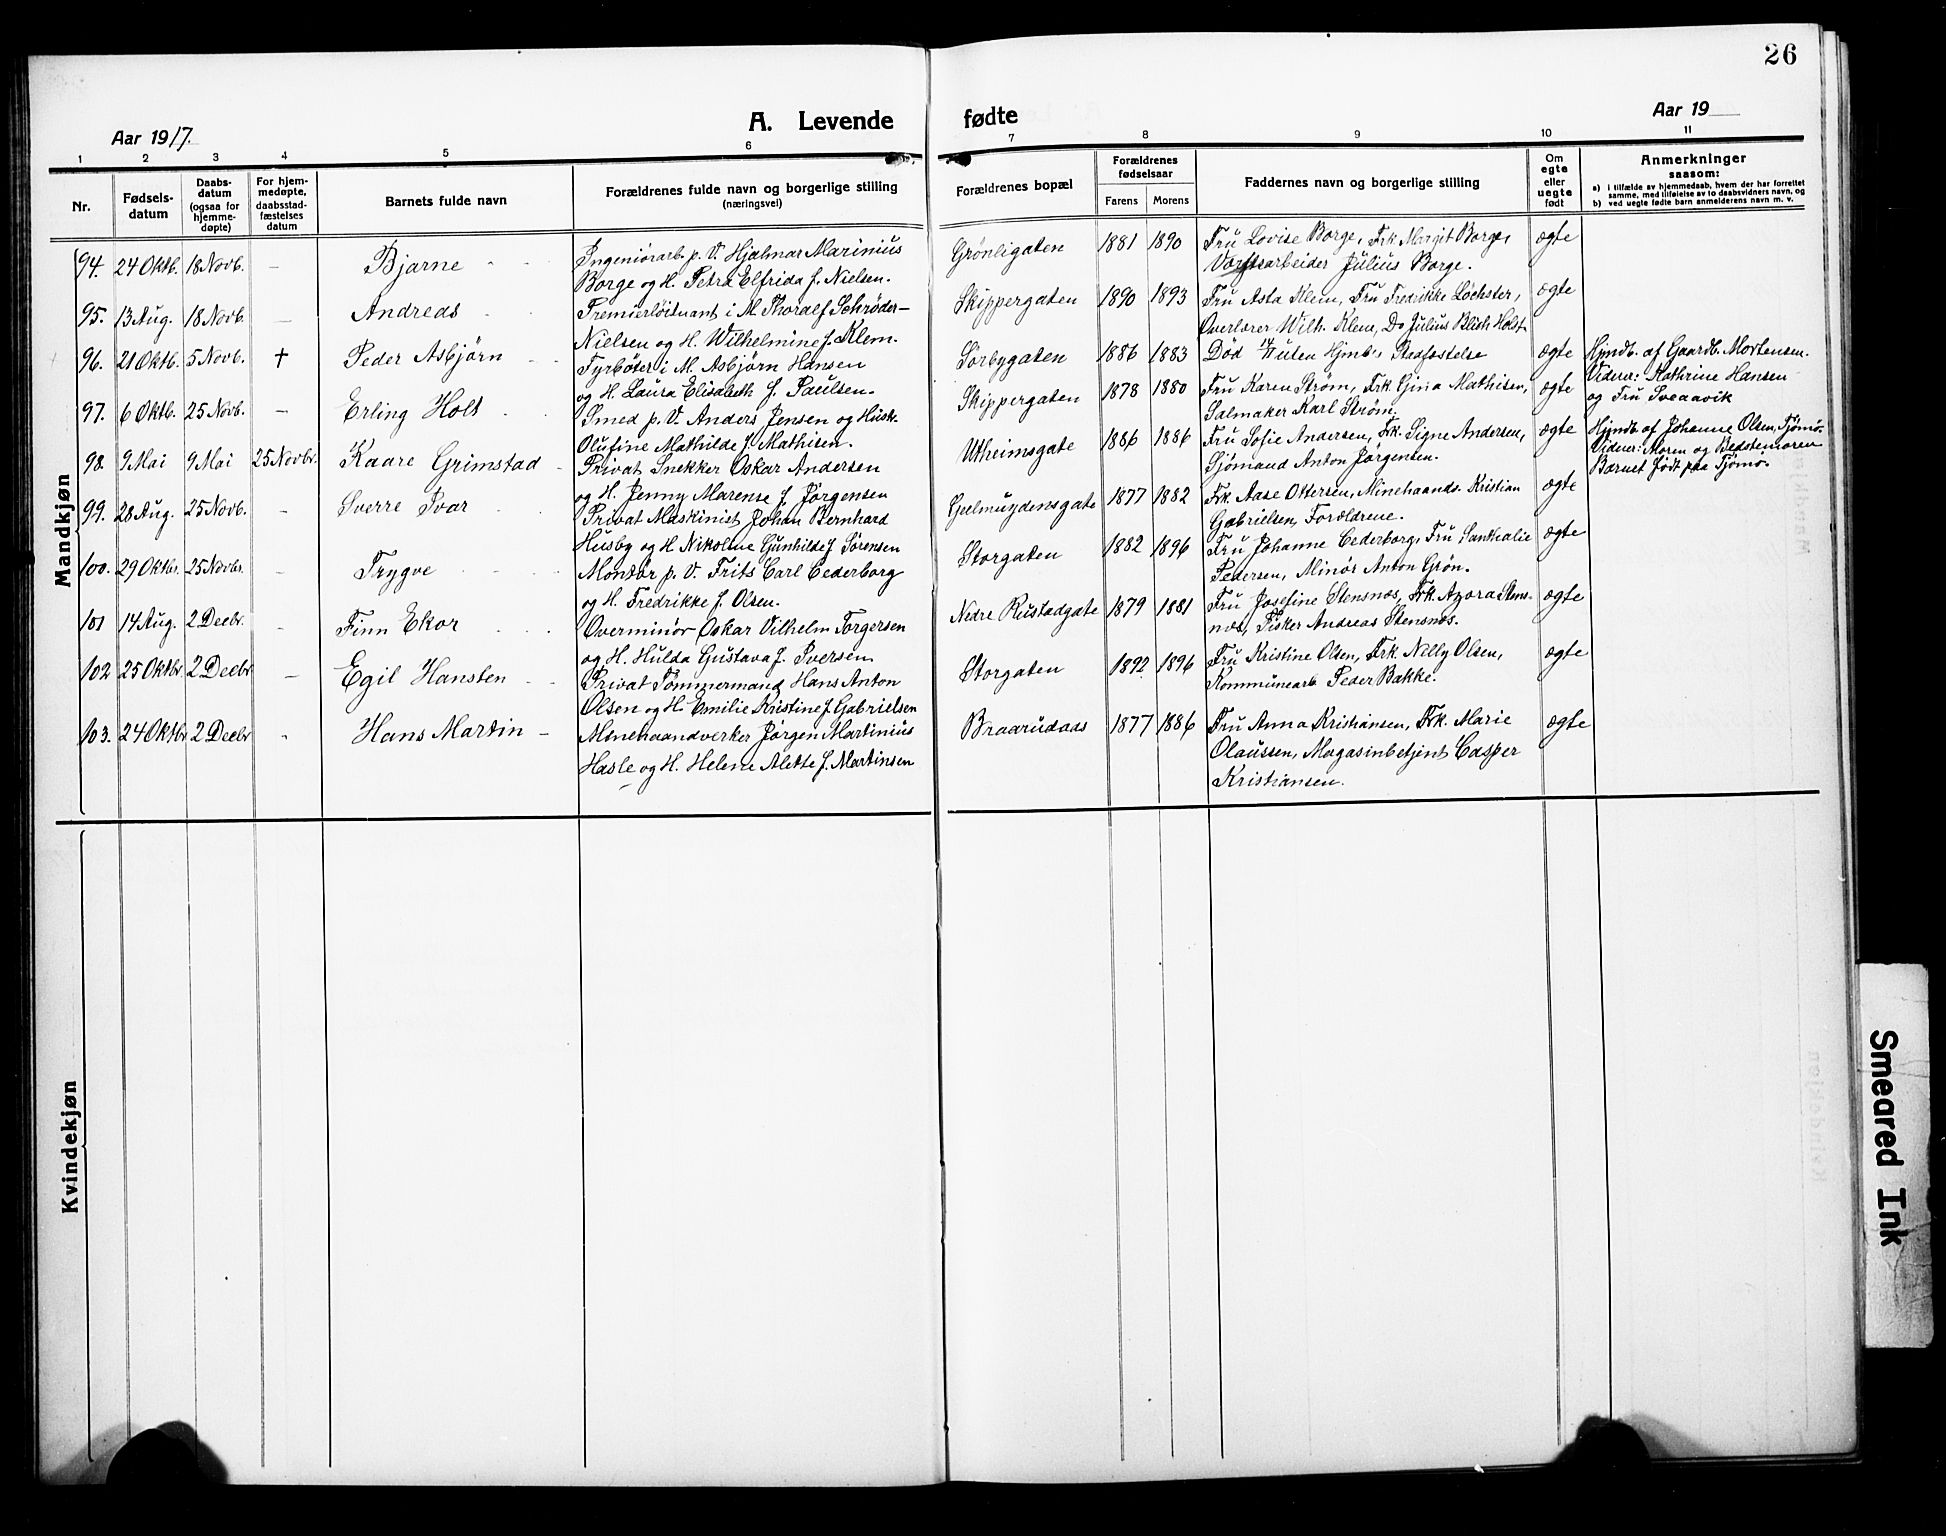 26
Aar 1917.
A. Levende fødte
Aar 19
1 2 3 4 5 6 7 8 9 10 11
Nr.
Fødsels-
datum
Daabs-
datum
(ogsaa for
hjemme-
døpte)
For hjem-
medøpte,
daabsstad-
fæstelses
datum
Barnets fulde navn
Forældrenes fulde navn og borgerlige stilling
(næringsvei)
Forældrenes bopæl
Forældrenes
fødselsaar
Farens Morens
Faddernes navn og borgerlige stilling
Om
egte
eller
uegte
født
Anmerkninger
saasom:
a) i tilfælde av hjemmedaab, hvem der har forrettet
samme, med tilføielse av to daabsvidners navn, og
b) ved uegte fødte barn anmelderens navn m. v.
Mandkjøn
94. 24 Oktb. 18 Novb. — Bjarne
Ingeniørarb. p. V. Hjalmar Marinius
Borge og H. Petra Elfrida f. Nielsen.
Grønligaten 1881 1890
Fru Lovise Borge, Frk Margit Borge,
Værftsarbeider Julius Borge.
ægte
95. 13 Aug. 18 Novb. — Andreas
Premierløitnant i M. Thoralf Schrøder-
Nielsen og H. Wilhelmine f. Klem.
Skippergaten 1890 1893
Fru Asta Klem, Fru Fredrikke Løchster,
Overlærer Wilh. Klem, Do Julius Blich Holst
ægte
96. 21 Oktb. 5 Novb. † Peder Asbjørn
Fyrbøter i M. Asbjørn Hansen
og H. Laura Elisabeth f. Paulsen.
Sørbygaten 1886 1883
Død uten Hjmbs Stadfæstelse
ægte
Hjmdb. af Gaardb. Mortensen.
Vidner: Kathrine Hansen
og Fru Sveaavik
97. 6 Oktb. 25 Novb. — Erling Holt
Smed p. V. Anders Jensen og Hustr.
Olufine Mathilde f. Mathisen.
Skippergaten 1878 1880
Fru Karen Strøm, Frk Gina Mathisen,
Salmaker Karl Strøm.
ægte
98. 9 Mai 9 Mai 25 Novbr. Kaare Grimstad
Privat Snekker Oskar Andersen
og H. Jenny Marense f. Jørgensen
Utheimsgate 1886 1886
Fru Sofie Andersen, Frk. Signe Andersen,
Sjømand Anton Jørgensen.
ægte
Hjmdb af Johanne Olsen, Tjømø.
Vidner: Moren og Bedstemoren
Barnet født paa Tjømø.
99. 28 Aug. 25 Novb. - Sverre Ivar
Privat Maskinist Johan Bernhard
Husby og H. Nikoline Gunhilde f. Sørensen
Gjelmuydensgate 1877 1882
Frk. Aase Ottersen, Minehaandv. Kristian
Gabrielsen, Forældrene.
ægte
100. 29 Oktbr. 25 Novbr. - Trygve
Montør p. V. Frits Carl Cederborg
og H. Fredrikke f. Olsen.
Storgaten 1882 1896
Fru Johanne Cederborg, Fru Santhalie
Pedersen, Minør Anton Grøn.
ægte
101 14 Aug. 2 Decbr. - Finn Ekor
Overminør Oskar Vilhelm Torgersen
og H. Hulda Gustava f. Iversen
Nedre Rustadgate 1879 1881
Fru Josefine Stensnæs, Frk. Agora Stens-
næs, Fisker Andreas Stensnæs.
ægte
102 25 Oktbr 2 Decbr — Egil Hansten
Privat Tømmermand Hans Anton
Olsen og H. Emilie Kristine f. Gabrielsen
Storgaten 1892 1896
Fru Kristine Olsen, Frk. Nelly Olsen,
Kommunearb Peder Bakke.
ægte
103. 24 Oktbr 2 Decbr - Hans Martin
Minehaandverker Jørgen Martinius
Hasle og H. Helene Alette f. Martinsen
Braarudaas 1877 1886
Fru Anna Kristiansen, Frk. Marie
Olaussen, Magasinbetjent Casper
Kristiansen.
ægte
Kvindekjøn
Smeared Ink